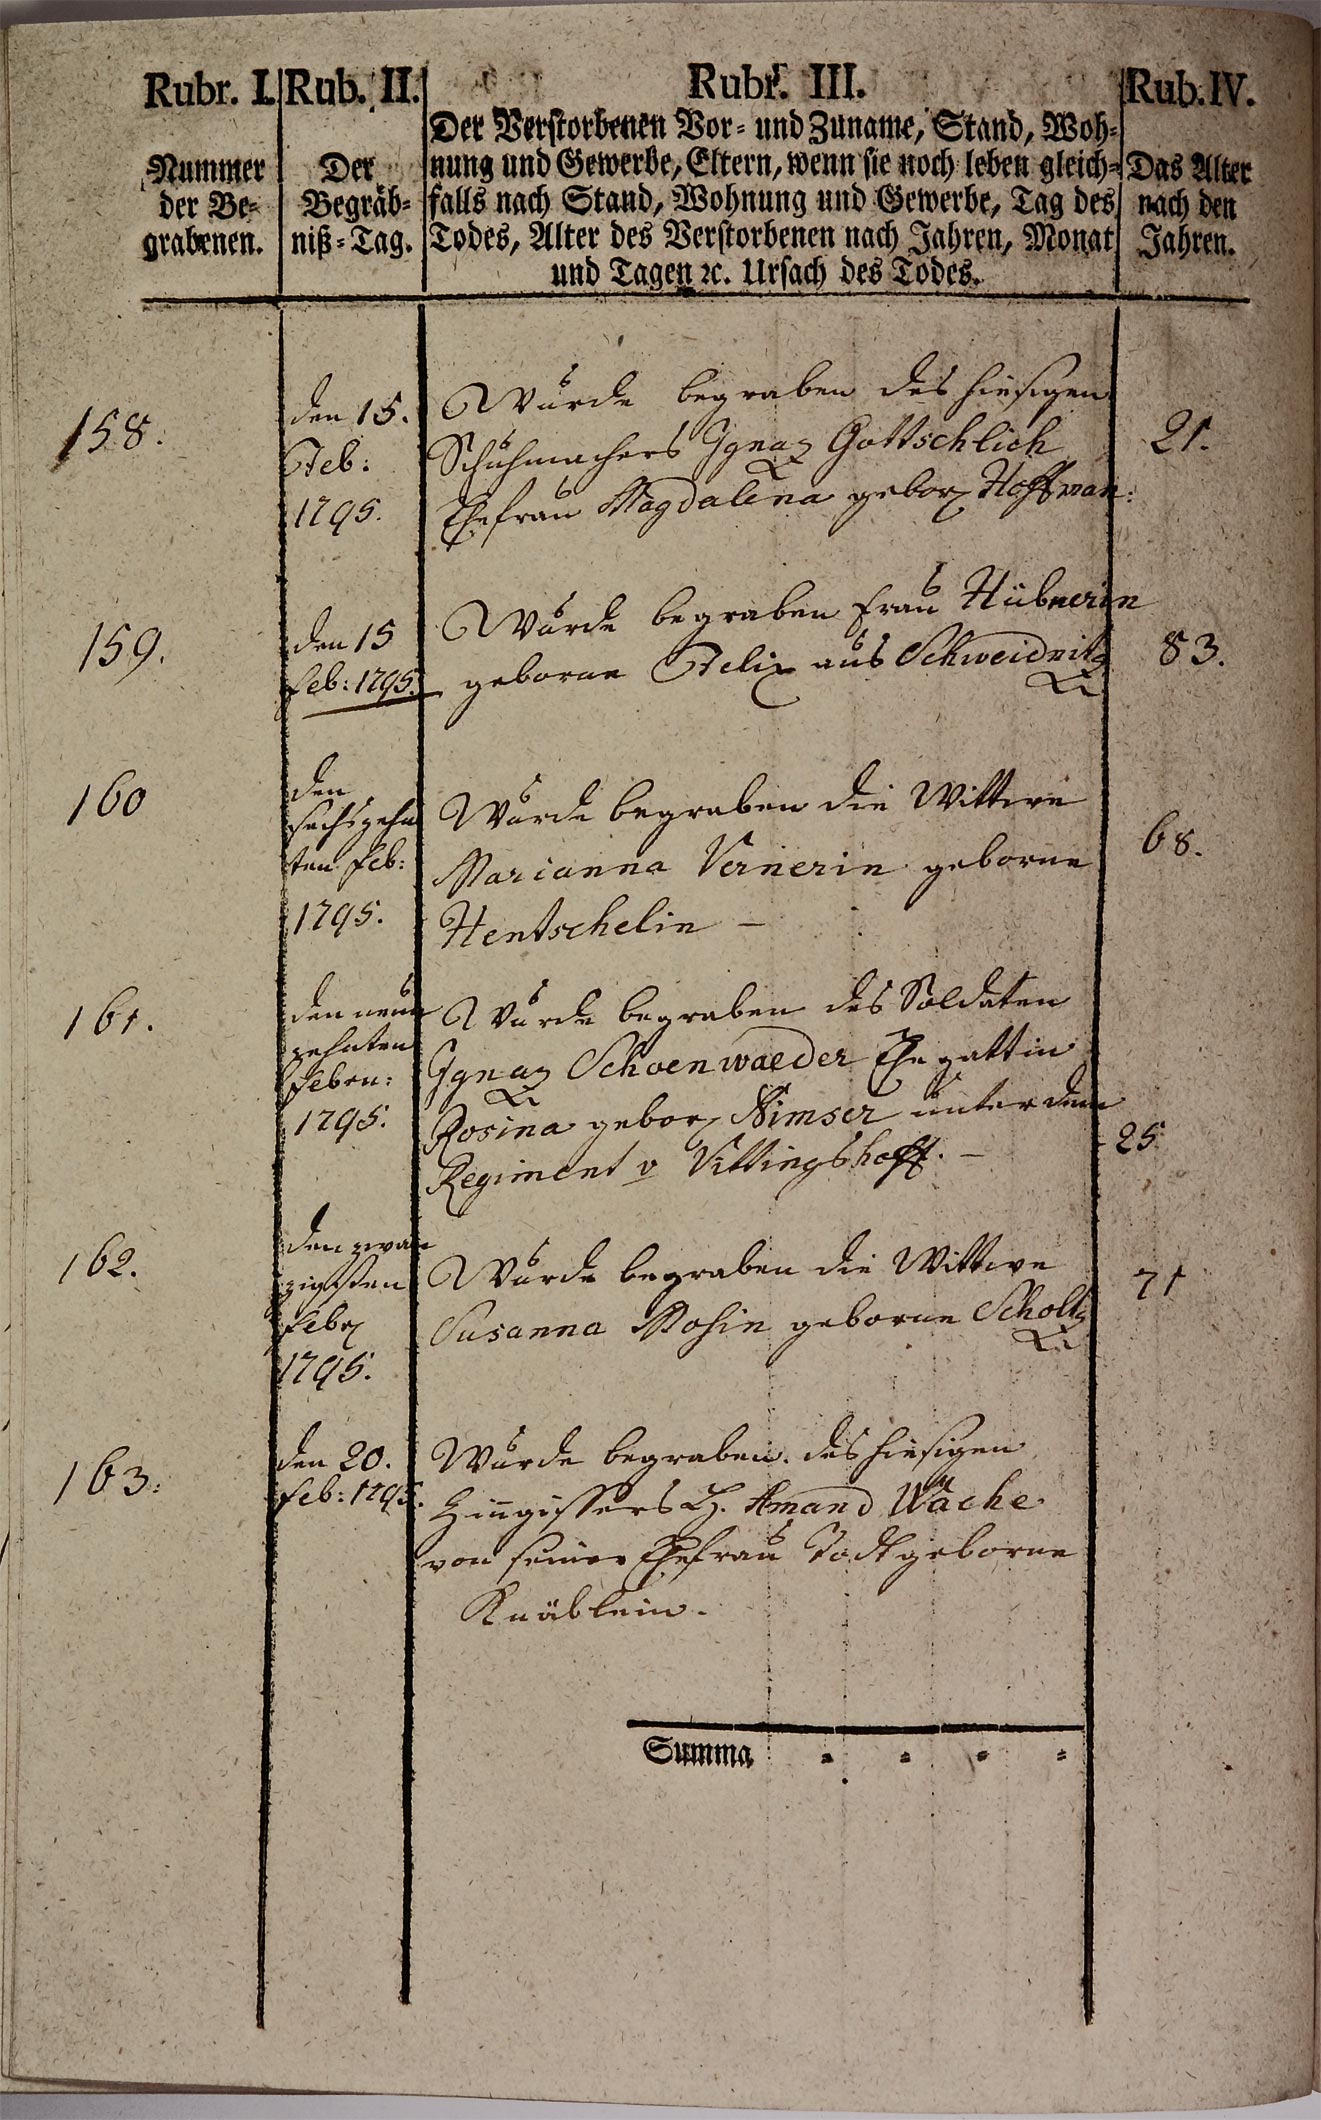 Rubr. I. Rub. II. Rubr. III. Rub. IV.
Nummer der Be= grabenen.
Der Begräb= niß=Tag.
Der Verstorbenen Vor= und Zuname, Stand, Woh=
nung und Gewerbe, Eltern, wenn sie noch leben gleich=
falls nach Stand, Wohnung und Gewerbe, Tag des
Todes, Alter des Verstorbenen nach Jahren, Monat
und Tagen ꝛc. Ursach des Todes.
Das Alter nach den Jahren.
158.
den 15.
Feb:
1795.
Wurde begraben des hiesigen
Schuhmachers Ignaz Gottschlich
Ehefrau Magdalena gebor Hoffman:
21.
159.
den 15
Feb: 1795.
Wurde begraben Frau Hübnerin
geborne Felix aus Schweidnitz
83.
160
den
sechszehn
ten Feb:
1795.
Wurde begraben die Wittwe
Marianna Vernerin geborne
Hentschelin –
68.
161.
den neun
zehnten
Febru:
1795.
Wurde begraben des Soldaten
Ignaz Schoenwaeder Ehegattin
Rosina gebor Nimser unter dem
Regiment v Vittingshoff. –
25
162.
den zwan
zigsten
Febr
1795.
Wurde begraben die Wittwe
Susanna Mosin geborne Scholtz
71
163:
den 20.
Feb: 1795.
Wurde begraben des hiesigen
Zinngissers H. Amand Wache
von seiner Ehefrau Todtgeborne
Knäblein.
Summa